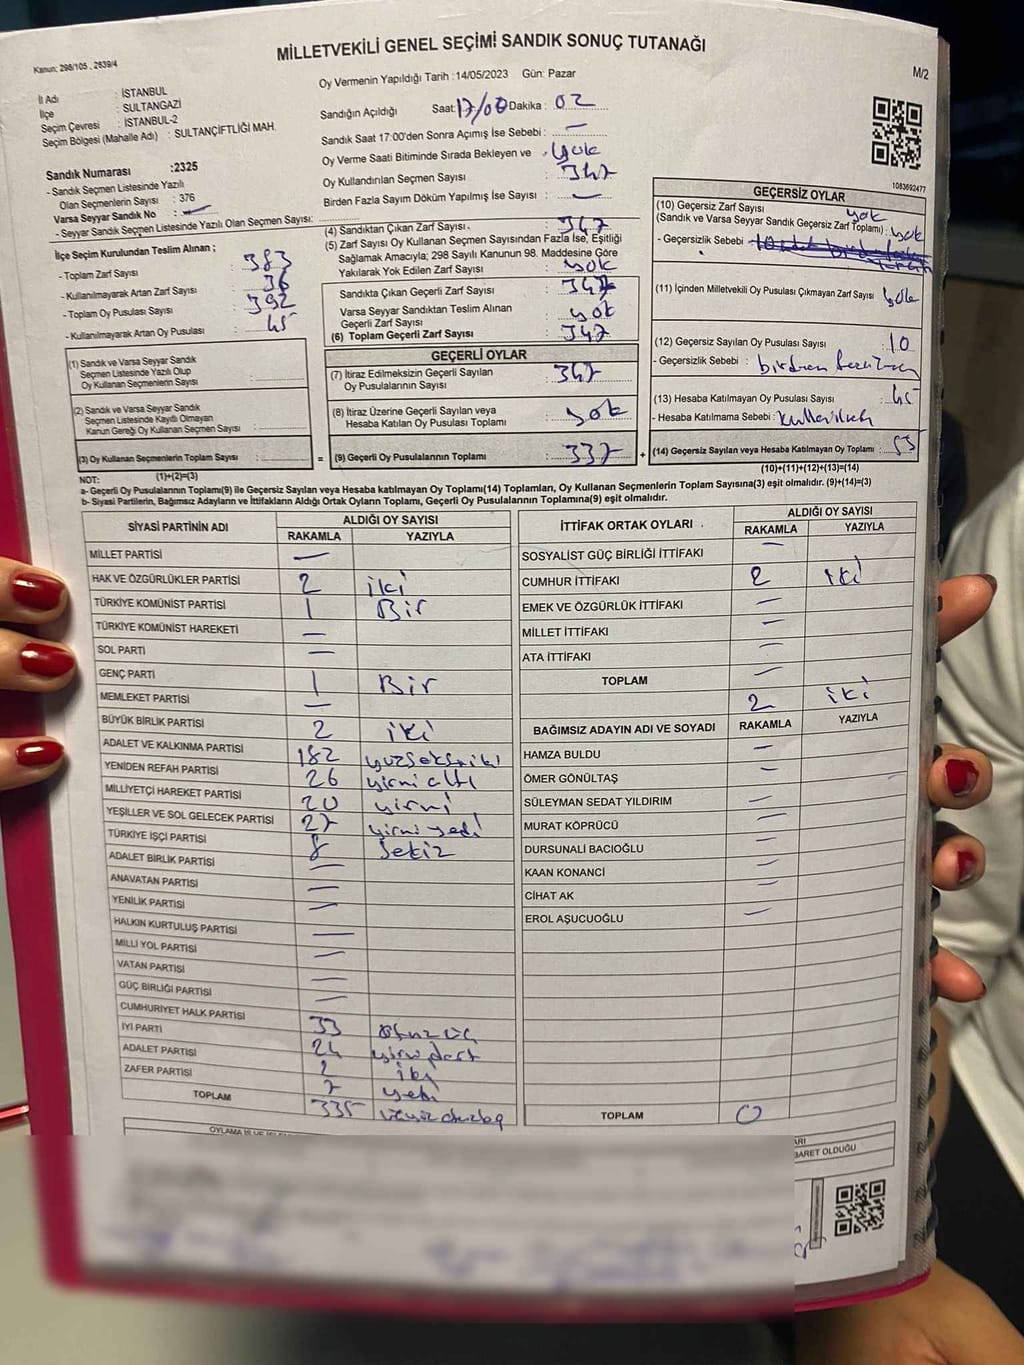 MİLLETVEKİLİ GENEL SEÇİMİ SANDIK SONUÇ TUTANAĞI
Kanun: 298/105 , 2839/4
M/2
İl Adı : İSTANBUL
İlçe : SULTANGAZİ
Seçim Çevresi : İSTANBUL-2
Seçim Bölgesi (Mahalle Adı) : SULTANÇİFTLİĞİ MAH.
Sandık Numarası :2325
- Sandık Seçmen Listesinde Yazılı
Olan Seçmenlerin Sayısı : 376
Varsa Seyyar Sandık No : —
- Seyyar Sandık Seçmen Listesinde Yazılı Olan Seçmen Sayısı:
Oy Vermenin Yapıldığı Tarih :14/05/2023 Gün: Pazar
Sandığın Açıldığı Saat: 17/00 Dakika : 02
Sandık Saat 17:00'den Sonra Açımış İse Sebebi : —
Oy Verme Saati Bitiminde Sırada Bekleyen ve : yok
Oy Kullandırılan Seçmen Sayısı : 347
Birden Fazla Sayım Döküm Yapılmış İse Sayısı : —
İlçe Seçim Kurulundan Teslim Alınan ;
- Toplam Zarf Sayısı : 383
- Kullanılmayarak Artan Zarf Sayısı : 36
- Toplam Oy Pusulası Sayısı : 392
- Kullanılmayarak Artan Oy Pusulası : 45
(1) Sandık ve Varsa Seyyar Sandık
Seçmen Listesinde Yazılı Olup
Oy Kullanan Seçmenlerin Sayısı :
(2) Sandık ve Varsa Seyyar Sandık
Seçmen Listesinde Kayıtlı Olmayan
Kanun Gereği Oy Kullanan Seçmen Sayısı :
(3) Oy Kullanan Seçmenlerin Toplam Sayısı :
(1)+(2)=(3)
(4) Sandıktan Çıkan Zarf Sayısı : 347
(5) Zarf Sayısı Oy Kullanan Seçmen Sayısından Fazla İse, Eşitliği
Sağlamak Amacıyla; 298 Sayılı Kanunun 98. Maddesine Göre
Yakılarak Yok Edilen Zarf Sayısı : yok
Sandıkta Çıkan Geçerli Zarf Sayısı : 347
Varsa Seyyar Sandıktan Teslim Alınan
Geçerli Zarf Sayısı : yok
(6) Toplam Geçerli Zarf Sayısı : 347
GEÇERLİ OYLAR
(7) İtiraz Edilmeksizin Geçerli Sayılan
Oy Pusulalarının Sayısı : 347
(8) İtiraz Üzerine Geçerli Sayılan veya
Hesaba Katılan Oy Pusulası Toplamı : yok
= (9) Geçerli Oy Pusulalarının Toplamı : 337 +
1083692477
GEÇERSİZ OYLAR
(10) Geçersiz Zarf Sayısı yok
(Sandık ve Varsa Seyyar Sandık Geçersiz Zarf Toplamı) : yok
- Geçersizlik Sebebi :
(11) İçinden Milletvekili Oy Pusulası Çıkmayan Zarf Sayısı : yok
(12) Geçersiz Sayılan Oy Pusulası Sayısı : 10
- Geçersizlik Sebebi : birden
(13) Hesaba Katılmayan Oy Pusulası Sayısı : 45
- Hesaba Katılmama Sebebi :
(14) Geçersiz Sayılan veya Hesaba Katılmayan Oy Toplamı :
(10)+(11)+(12)+(13)=(14)
NOT:
a- Geçerli Oy Pusulalarının Toplamı(9) ile Geçersiz Sayılan veya Hesaba Katılmayan Oy Toplamı(14) Toplamları, Oy Kullanan Seçmenlerin Toplam Sayısına(3) eşit olmalıdır. (9)+(14)=(3)
b- Siyasi Partilerin, Bağımsız Adayların ve İttifakların Aldığı Ortak Oyların Toplamı, Geçerli Oy Pusulalarının Toplamına(9) eşit olmalıdır.
SİYASİ PARTİNİN ADI ALDIĞI OY SAYISI
RAKAMLA YAZIYLA
MİLLET PARTİSİ —
HAK VE ÖZGÜRLÜKLER PARTİSİ 2 iki
TÜRKİYE KOMÜNİST PARTİSİ 1 Bir
TÜRKİYE KOMÜNİST HAREKETİ —
SOL PARTİ —
GENÇ PARTİ 1 Bir
MEMLEKET PARTİSİ —
BÜYÜK BİRLİK PARTİSİ 2 iki
ADALET VE KALKINMA PARTİSİ 182 yüzseksniki
YENİDEN REFAH PARTİSİ 26 yirmi altı
MİLLİYETÇİ HAREKET PARTİSİ 20 yirmi
YEŞİLLER VE SOL GELECEK PARTİSİ 27 yirmi yedi
TÜRKİYE İŞÇİ PARTİSİ 8 Sekiz
ADALET BİRLİK PARTİSİ —
ANAVATAN PARTİSİ —
YENİLİK PARTİSİ —
HALKIN KURTULUŞ PARTİSİ —
MİLLİ YOL PARTİSİ —
VATAN PARTİSİ —
GÜÇ BİRLİĞİ PARTİSİ —
CUMHURİYET HALK PARTİSİ 33 otuz üç
İYİ PARTİ 24 yirmi dört
ADALET PARTİSİ 2 iki
ZAFER PARTİSİ 7 yedi
TOPLAM 335
İTTİFAK ORTAK OYLARI ALDIĞI OY SAYISI
RAKAMLA YAZIYLA
SOSYALİST GÜÇ BİRLİĞİ İTTİFAKI —
CUMHUR İTTİFAKI 2 iki
EMEK VE ÖZGÜRLÜK İTTİFAKI —
MİLLET İTTİFAKI —
ATA İTTİFAKI —
TOPLAM —
2 iki
BAĞIMSIZ ADAYIN ADI VE SOYADI RAKAMLA YAZIYLA
HAMZA BULDU —
ÖMER GÖNÜLTAŞ —
SÜLEYMAN SEDAT YILDIRIM —
MURAT KÖPRÜCÜ —
DURSUNALİ BACIOĞLU —
KAAN KONANCİ —
CİHAT AK —
EROL AŞUCUOĞLU —
TOPLAM 0
OYLAMA
ARI
BARET OLDUĞU